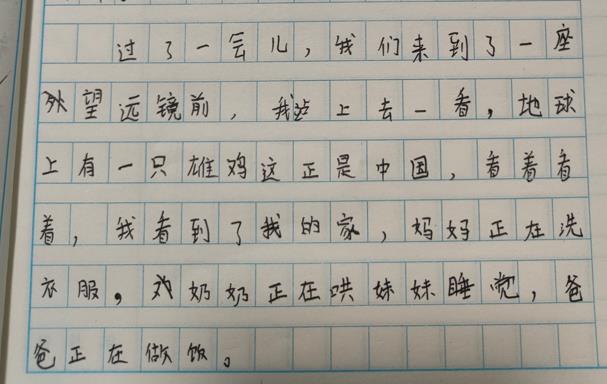 过了一会儿,我们来到了一座
望远镜前,我站上去一看,地球
上有一只雄鸡这正是中国,看着看
着,我看到了我的家,妈妈正在洗
衣服,奶奶正在哄妹妹睡觉,爸
爸正在做饭。